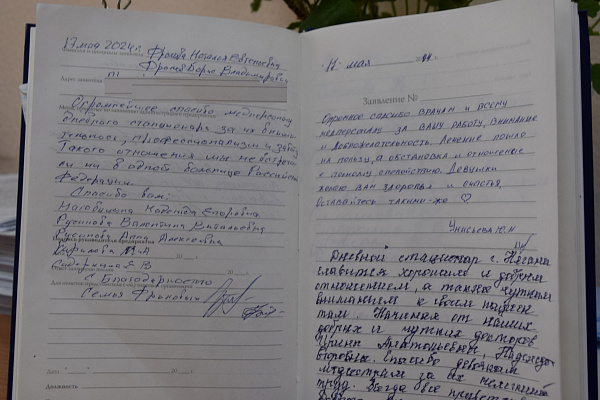 17 мая 2024 г. Фролова Наталья Евгеньевна
Фролов Борис Владимирович
Адрес заявителя
Огромнейшее спасибо медперсоналу
дневного стационара за их внима-
тельность, профессионализм и заботу.
Такого отношения мы не встреча-
ли ни в одной больнице Российской
Федерации.
Спасибо вам:
Надежда Егоровна
Русинова Валентина Витальевна
Русинова Анна Алексеевна
С Благодарностью
Семья Фроловых
Дата " " 20 г.
Должность
17 мая
Заявление №
Огромное спасибо врачам и всему
медперсоналу за вашу работу, внимание
и доброжелательность. Лечение пошло
на пользу, а обстановка и отношение
к полному спокойствию. Девушки
желаю вам здоровья и счастья,
оставайтесь такими-же ♡
Ю.Н
Дневной стационар г. Нягани
славится хорошим и добрым
отношением, а также чутким
вниманием к своим пациен
там. Начиная от наших
добрых и чутких докторов
Ирины Анатольевны, Надежды
Егоровны. Спасибо девочкам
медсестрам за их нелегкий
труд. Всегда все приветливы